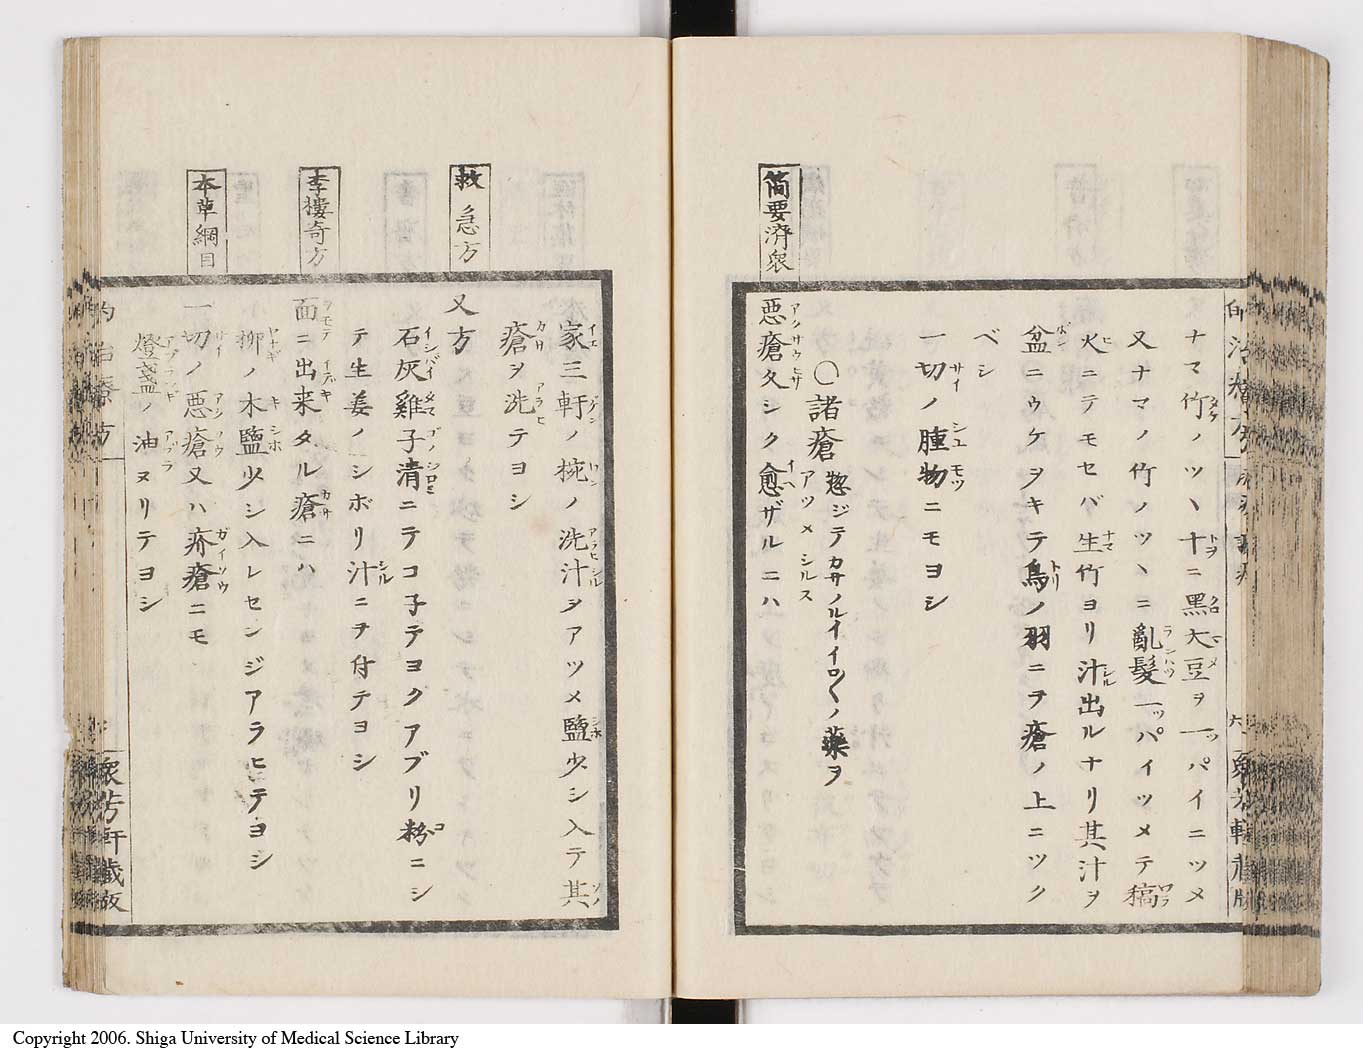 ナマ竹ノツヽ十ニ黒大豆ヲ一パイニツメ
又ナマノ竹ノツヽニ亂髪一パイツメテ稿
火ニテモセバ生竹ヨリ汁出ルナリ其汁ヲ
盆ニウケヲキテ鳥ノ羽ニヲ瘡ノ上ニツク
ベシ
一切ノ腫物ニモヨシ
〇諸瘡 惣ジテカサノルイイロ〱ノ藥ヲ
アツメシルス
簡要濟衆
悪瘡久シク愈ザルニハ
家三軒ノ椀ノ洗汁ヲアツメ鹽少シ入テ其
瘡ヲ洗テヨシ
救急方
又方
石灰雞子清ニテコ子テヨクアブリ粉ニシ
テ生姜ノシボリ汁ニヲ付テヨシ
李樓奇方
面ニ出来タル瘡ニハ
柳ノ木鹽少シ入レセンジアラヒテヨシ
本草綱目
一切ノ悪瘡又ハ疥瘡ニモ
燈盞ノ油ヌリテヨシ
衆芳軒藏板
Copyright 2006. Shiga University of Medical Science Library